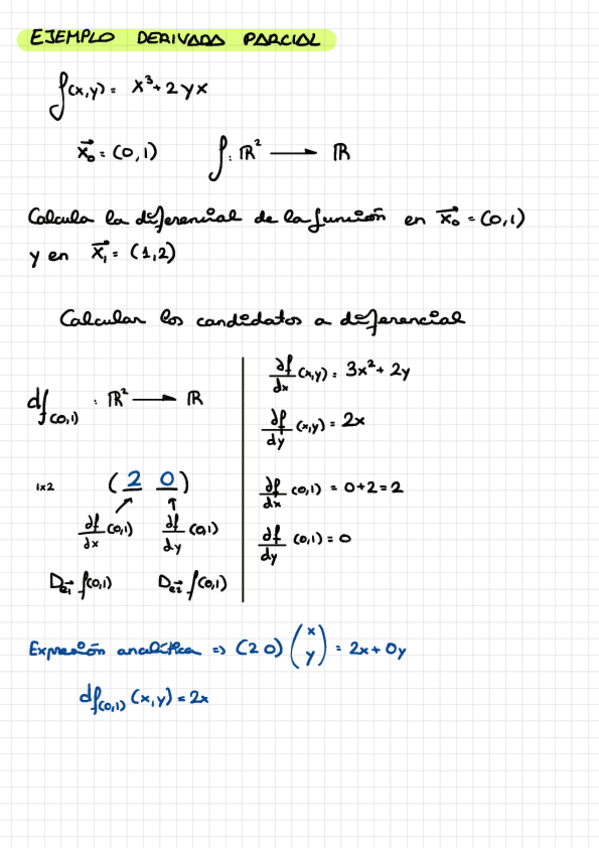 EJEMPLO DERIVADA PARCIAL
f(x,y) = x³ + 2yx
x⃗₀ = (0,1)    f: ℝ² → ℝ
Calcula la diferencial de la función en x⃗₀ = (0,1)
y en x⃗₁ = (1,2)
Calcular los candidatos a diferencial
df(0,1) : ℝ² → ℝ
1x2 (2 0)
∂f/dx (0,1)  ∂f/dy (0,1)
De⃗₁ f(0,1)  De⃗₂ f(0,1)
∂f/dx (x,y) = 3x² + 2y
∂f/dy (x,y) = 2x
∂f/dx (0,1) = 0+2 = 2
∂f/dy (0,1) = 0
Expresión analítica => (2 0) (x y) = 2x + 0y
df(0,1) (x,y) = 2x